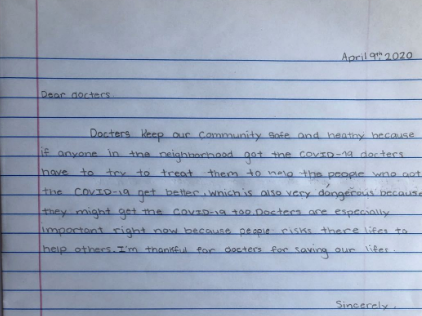 April 9th, 2020
Dear docters
Docters keep our community safe and heathy because
if anyone in the neighborhood got the COVID-19 docters
have to try to treat them to help the people who got
the COVID-19 get better, which is also very dangerous because
they might get the COVID-19 too. Docters are especially
important right now because people risks there lifes to
help others. I'm thankful for docters for saving our lifes.
Sincerely,